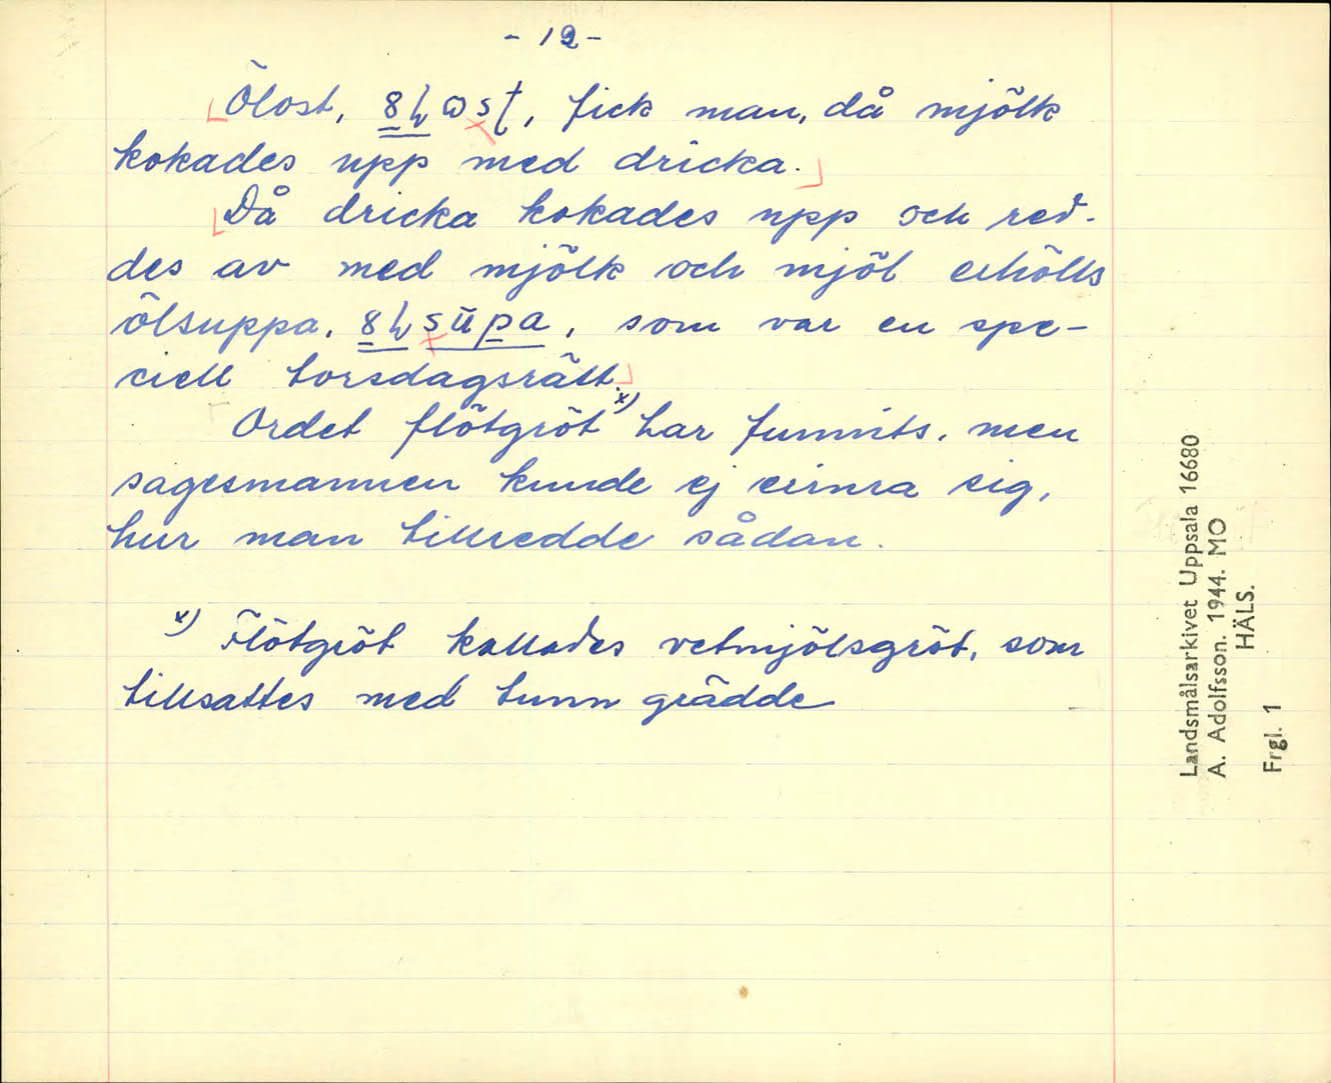 - 12 -
Ölost, fick man, då mjölk
kokades upp med dricka.
Då dricka kokades upp och red-
des av med mjölk och mjöl erhölls
ölsuppa, som var en spe-
ciell torsdagsrätt.
Ordet flötgröt x) har funnits, men
sagesmannen kunde ej erinra sig,
hur man tillredde sådan.
x) Flötgröt kallades vetmjölsgröt, som
tillsattes med tunn grädde
Landsmålsarkivet Uppsala 16680
A. Adolfsson. 1944. MO
HÄLS.
Frgl. 1